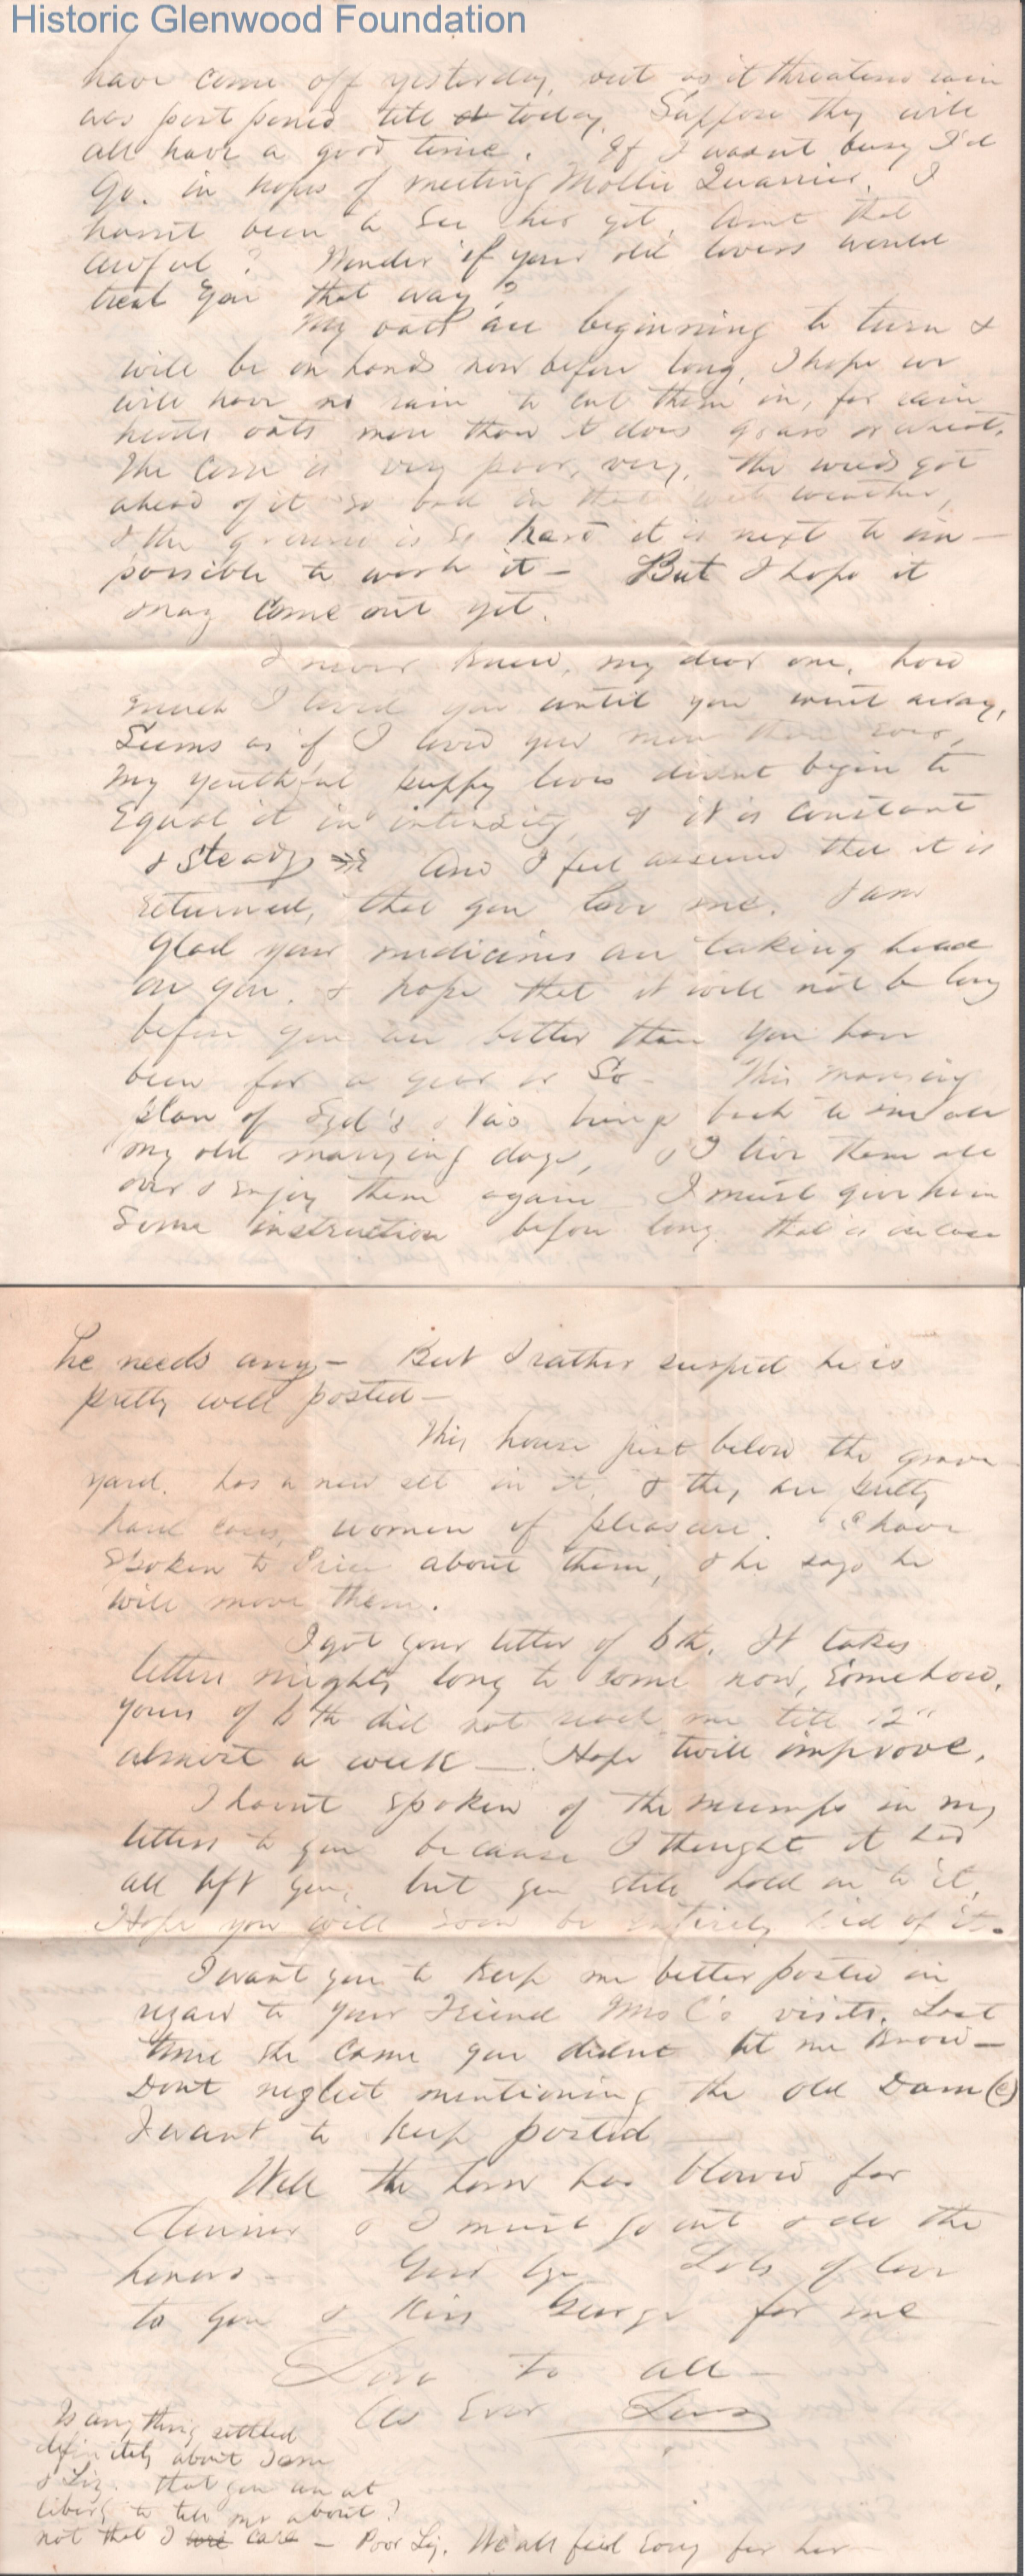 Historic Glenwood Foundation
have come off yesterday, but as it threatened rain
was postponed till to today. Suppose they will
all have a good time. If I wasn't busy I'd
go. in hopes of meeting Mollie I
hasn't been to see her yet, aint that
awful? Wonder if your old lovers would
treat you that way?
My oats are beginning to turn &
will be on hands now before long, I hope we
will have no rain to cut them in, for rain
hurts oats more than it does grass or wheat.
The corn is very poor, very. The weeds got
ahead of it so bad in that wet weather,
& the ground is so hard it is next to im-
possible to work it - But I hope it
may come out yet.
I never knew, my dear one, how
much I loved you until you went away,
Seems as if I loved you more than ever,
My youthful puppy loves didnt begin to
Equal it in intensity, & it is constant
& steady And I feel assured that it is
returned, that you love me. I am
glad your medicines are taking
on you. & hope that it will not be long
before you are better than you have
been for a year or so - This marrying
plan of & brings back to me all
my old marrying days, & I live them all
over & enjoy them again I must give him
Some instruction before long. that is in case
he needs any - But I rather suspect he is
pretty well posted -
This house just below the grave
yard. has a new set in it, & they are pretty
hard cases, women of pleasure. I have
spoken to Price about them, & he says he
will move them.
I got your letter of 6th. It takes
letters mighty long to come now, somehow.
yours of 6th did not reach me till 12"
almost a week - Hope twill improve.
I havnt spoken of the mumps in my
letters to you because I thought it had
all left you, but you still hold on to it,
Hope you will soon be entirely rid of it.
I want you to keep me better posted in
regard to your Friend Mrs C's visits. Last
time she came you didnt let me know -
Dont neglect mentioning the old Dam(e)
I want to keep posted
Well the horn has blown for
dinner & I must go out & do the
honors - Good bye Lots of love
to you & Kiss George for me
Love to all -
As Ever
Is anything settled
definitely about Sam
& Liz. that you are at
liberty to tell me about?
not that I care - Poor Liz. We all feel sorry for her